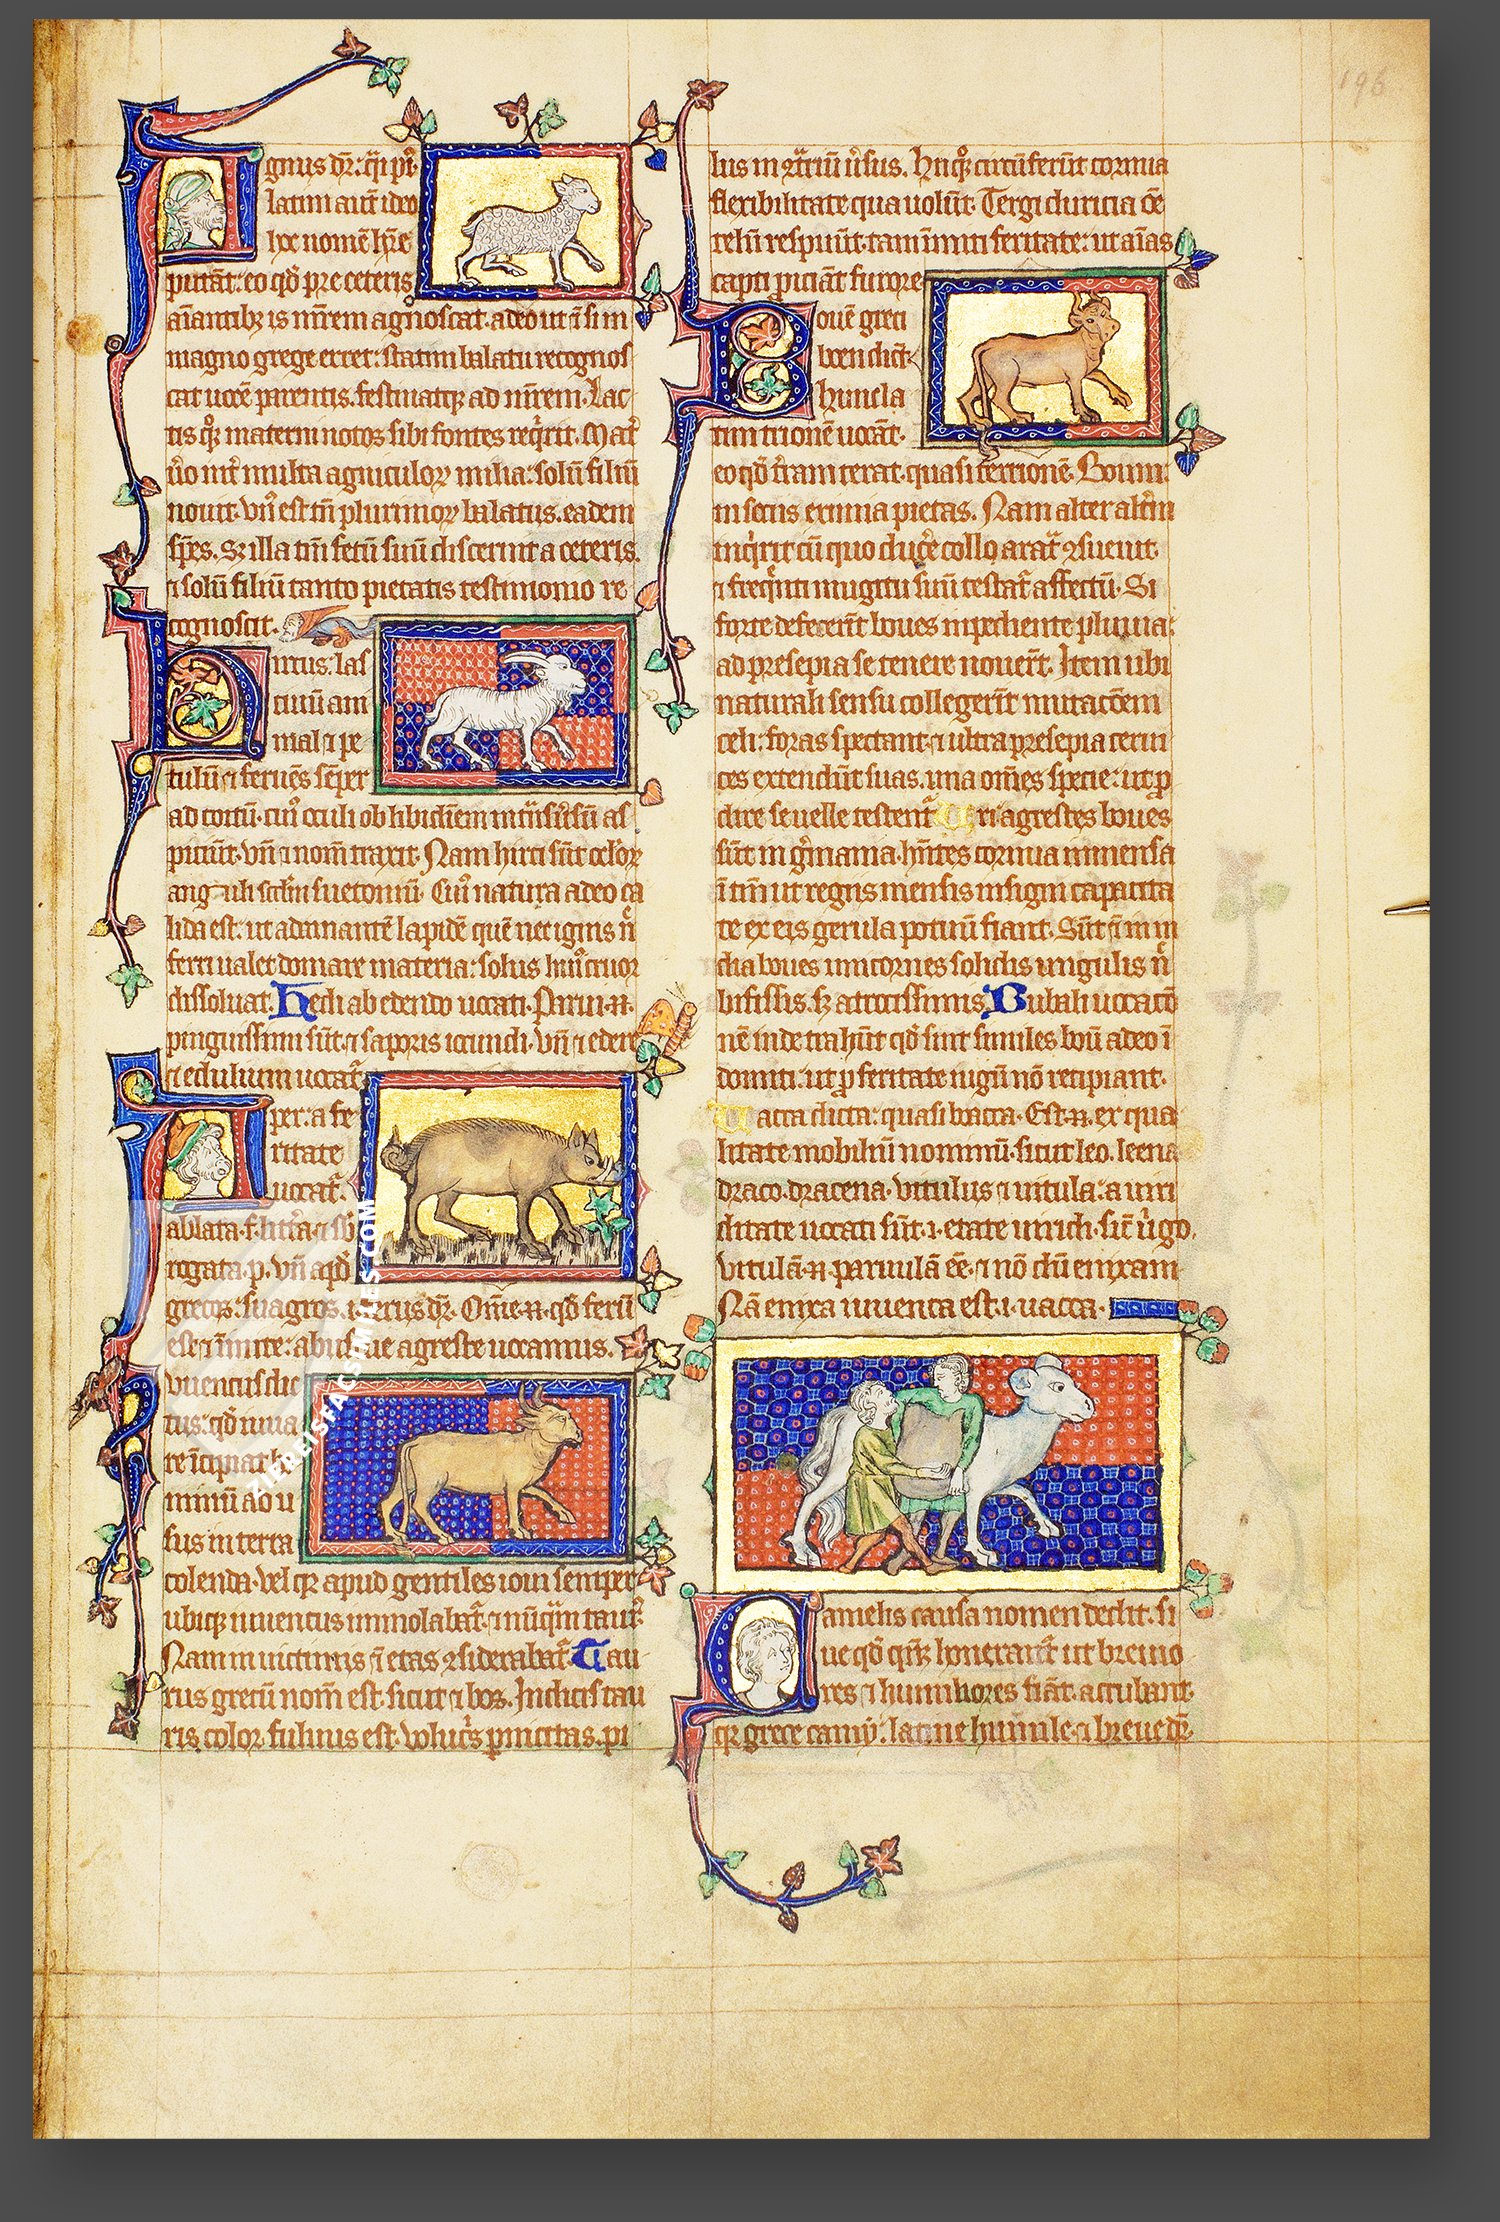 196
Agnus dr̄: q̄i pi⁹
latini aut̄ ideo
hoc nomē h̄re
putāt: eo qd̄ pre ceteris
aīantibꝫ is mr̄em agnoscat. adeo ut ⁊ si in
magno grege erret: statim balatu recognos
cat uocē parentis. festinatqꝫ ad mr̄em. Lac
tis qꝫ materni notos sibi fontes req̄rit. Mat̄
ū̓o int̄ multa agniculoꝝ milia: solū filiū
nouit. Vn̄ est tn̄ plurimoꝝ balatus. eadem
spēs. Sꝫ illa tn̄ fetū suū discernit a ceteris.
⁊ solū filiū tanto pietatis testimonio re
cognoscit.
Hircus: las
ciuū am
mal ⁊ pe
tulcū ⁊ feruēs sēper
ad coitū. cui⁹ oculi ob libidinem in tn̄suersū as
piciūt. vn̄ ⁊ nom̄ traxit. Nam hirci sūt oc̄loꝝ
anguli scdm̄ suetoniū. Cui⁹ natura adeo ca
lida est: ut adamantē lapidē quē nec ignis n̄
ferri ualet domare materia: solus hui⁹ cruor
dissoluat. Hedi ab edendo uocati. Parui .n.
pinguissimi sūt. ⁊ saporis iocundi. vn̄ ⁊ edere
⁊ edulium uocat̄.
Aper: a fe
ritate
uocat̄.
ablata .f. litt̄a ⁊ sb̄
rogata .p. vn̄ apd̄
grecos: suagros. i. ferus dr̄. Om̄e .n. qd̄ ferū
est ⁊ īmite: abusiue agreste uocamus.
Iuuencus dic
tus: qd̄ iuua
re īcipiat ho
minū ad u
sus in terra
colenda. vel qꝫ apud gentiles ioui semper
ubiqꝫ iuuencus immolabat̄. ⁊ nūq̄m taur⁹.
Nam in uictimis ⁊ etas ꝯsiderabat̄. Tau
rus grecū nom̄ est. sicut ⁊ bos. Indicis tau
ris color fuluus est. volucris pnicitas. pi
lus in ꝯtrariū ū̓sus. Hiiqꝫ circūferūt cornua
flexibilitate qua uolūt. Tergi duricia ōe
telū respuūt. tam īmiti feritate: ut aīas
capti piciāt furore
Bouē greci
boen dicūt.
hunc la
tini trionē uocāt.
eo qd̄ t̄ram terat. quasi terrionē. Bouū.
in sociis eximia pietas. Nam alter alt̄m
inq̄rit cū quo duce̓ collo arat̄ ꝯsueuit.
⁊ freq̄nti mugitu suū testat̄ affectū. Si
forte defecerīt boues inpediente pluuia:
ad presepia se tenere nouer̄t. Item ubi
naturali sensu collegerīt mutacōem
celi: foras spectant. ⁊ ultra presepia cerui
ces extendūt suas. una om̄es specie: ut p
dire se uelle testent̄. Uri agrestes boues
sūt in g̓mania. hn̄tes cornua inmensa
ītm̄ ut regiis mensis insigni capacita
te ex eis gerula potuū fiant. Sūt ⁊ in in
dia boues unicornes solidis ungulis n̄
bifissis. sꝫ atrocissimis. Bubali uocacō
nē inde trahūt qd̄ sint similes boū adeo ī
domiti: ut p̱ feritate iugū nō recipiant.
Uacca dicta: quasi boacca. Est .n. ex qua
litate mobiliū nominū. sicut leo. leena
draco. dracena. vitulus ⁊ uitula: a uiri
ditate uocati sūt .i. etate uiridi. sic̄ ūgo.
vitulā .n. paruulā ēe. ⁊ nō dū enixam
Nā enixa iuuenca est .i. uacca.
Camelis causa nomen dedit. si
ue qd̄ qn̄ honerant̄ ut breuio
res ⁊ humiliores fiāt. accubant.
qꝫ grece camy⁹. latine humile ⁊ breue dr̄.
ZIEREISFACSIMILES.COM